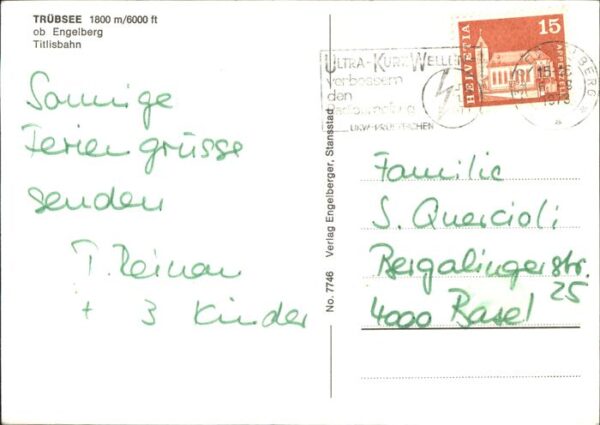 TRÜBSEE 1800 m/6000 ft
ob Engelberg
Titlisbahn
Sonnige
Feriengrüsse
senden
T. Reinau
+ 3 Kinder
No. 7746 Verlag Engelberger, Stansstad
ULTRA-KURZ-WELLEN
verbessern
den
HELVETIA
15
APPENZELL
Familie
S. Quercioli
Bergalingerstr.
25
4000 Basel